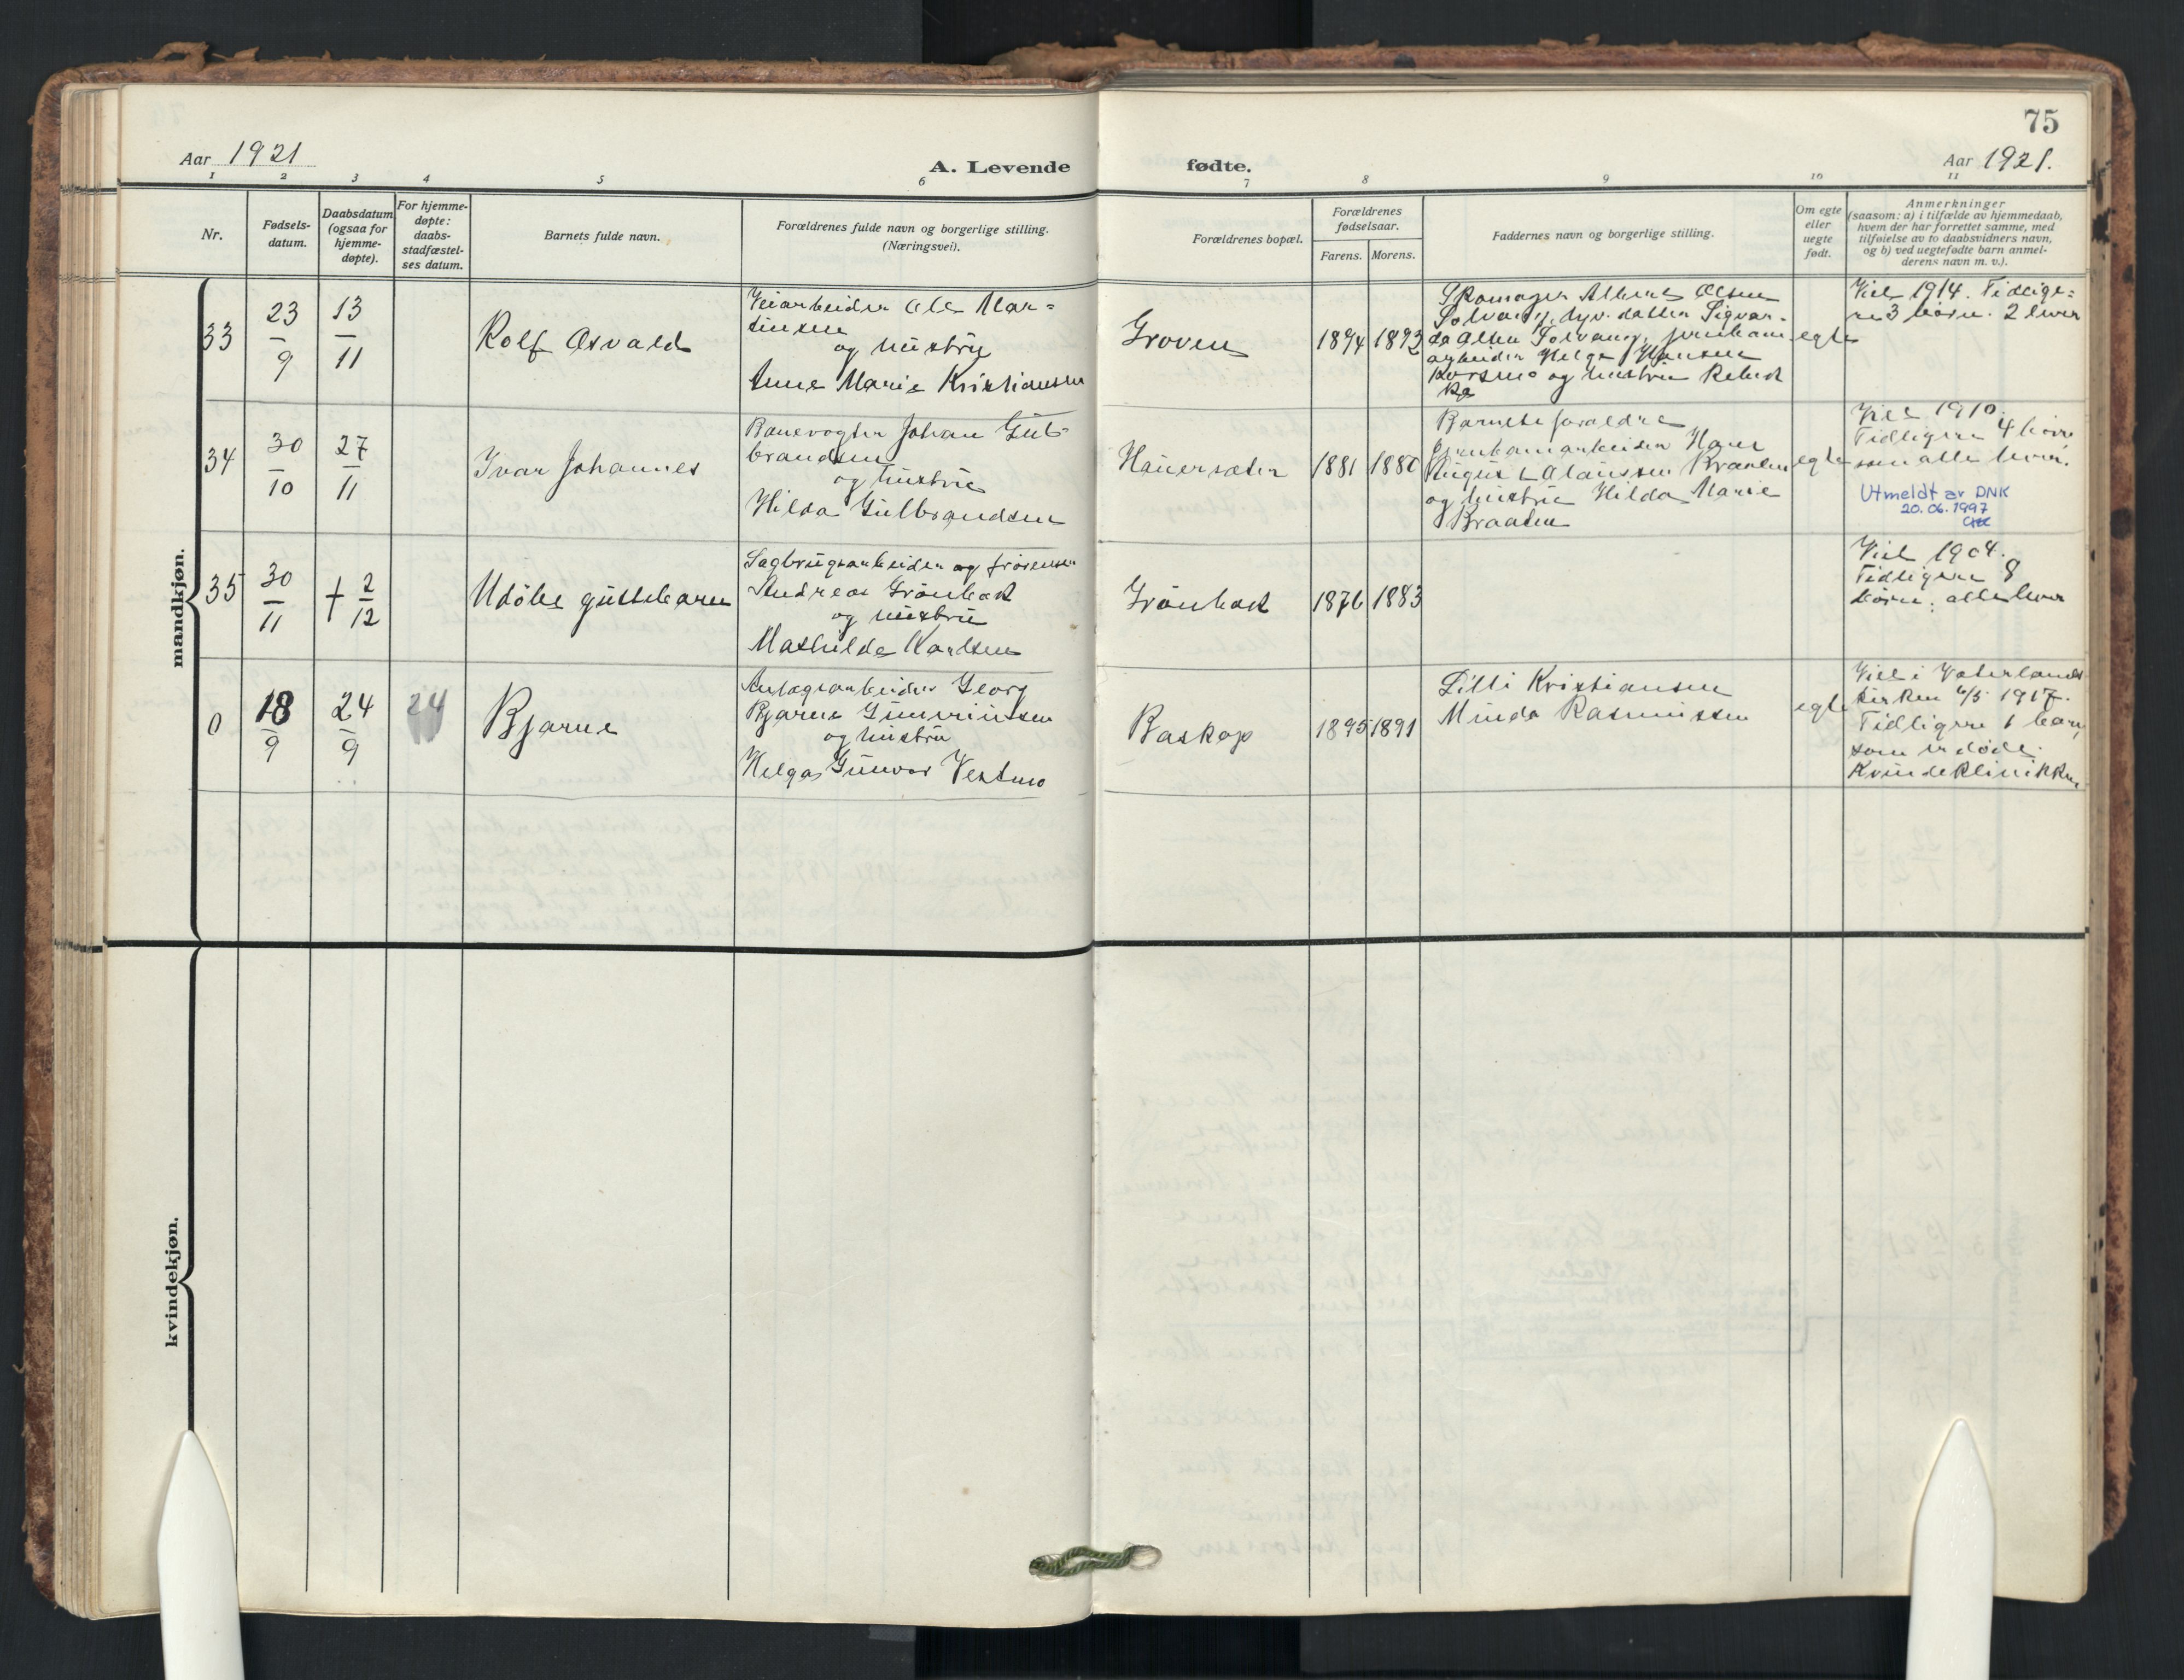 75
Aar 1921
A. Levende
fødte.
Aar 1921.
1 2 3 4 5 6 7 8 9 10 11
Nr.
Fødsels-
datum.
Daabsdatum
(ogsaa for
hjemme-
døpte).
For hjemme-
døpte:
daabs-
stadfæstel-
ses datum.
Barnets fulde navn.
Forældrenes fulde navn og borgerlige stilling.
(Næringsvei).
Forældrenes bopæl.
Forældrenes
fødselsaar.
Farens. Morens.
Faddernes navn og borgerlige stilling.
Om egte
eller
uegte
født.
Anmerkninger
(saasom: a) i tilfælde av hjemmedaab,
hvem der har forrettet samme, med
tilføielse av to daabsvidners navn,
og b) ved uegtefødte barn anmel-
derens navn m. v.).
mandkjøn.
33
23
9
13
11
Rolf Osvald
Veiarbeider Ole Mar-
tinsen
og hustru
Anne Marie Kristiansen
Groven
1894 1893
Skomager Albert Olsen
Solvang, datter Sigvar-
da Olsen Solvang, jernbane
arbeider Helge Hansen
Korsmo og hustru Rebek
ka
egte
Viet 1914. Tidlige-
re 3 børn. 2 lever
34
30
10
27
11
Ivar Johannes
Banevogter Johan Gul-
brandsen
og hustru
Hilda Gulbrandsen
Hauersæter
1881 1880
Barnets forældre
Jernbanearbeider Hans
August Olaussen Braaten
og hustru Hilda Marie
Braaten
egte
Viet 1910.
Tidligere 4 børn
som alle lever.
Utmeldt av DNK
20.06.1997
35
30
11
† 2
12
Udöbt guttebarn
Sagbrugsarbeider og
Andreas Grönbæk
og hustru
Mathilde Karlsen
Grönbæk
1876 1883
Viet 1904.
Tidligere 8
børn: alle lever
0
18
9
24
9
24
Bjarne
Anlægsarbeider Georg
Bjarne
og hustru
Helga Gunvor Vestmo
Baskop
1895 1891
Lilli Kristiansen
Minda Rasmussen
egte
Viet i Vaterlands
kirken 6/5 1917.
Tidligere 1 barn,
som er döde.
Kvindeklinikken
kvindekjøn.